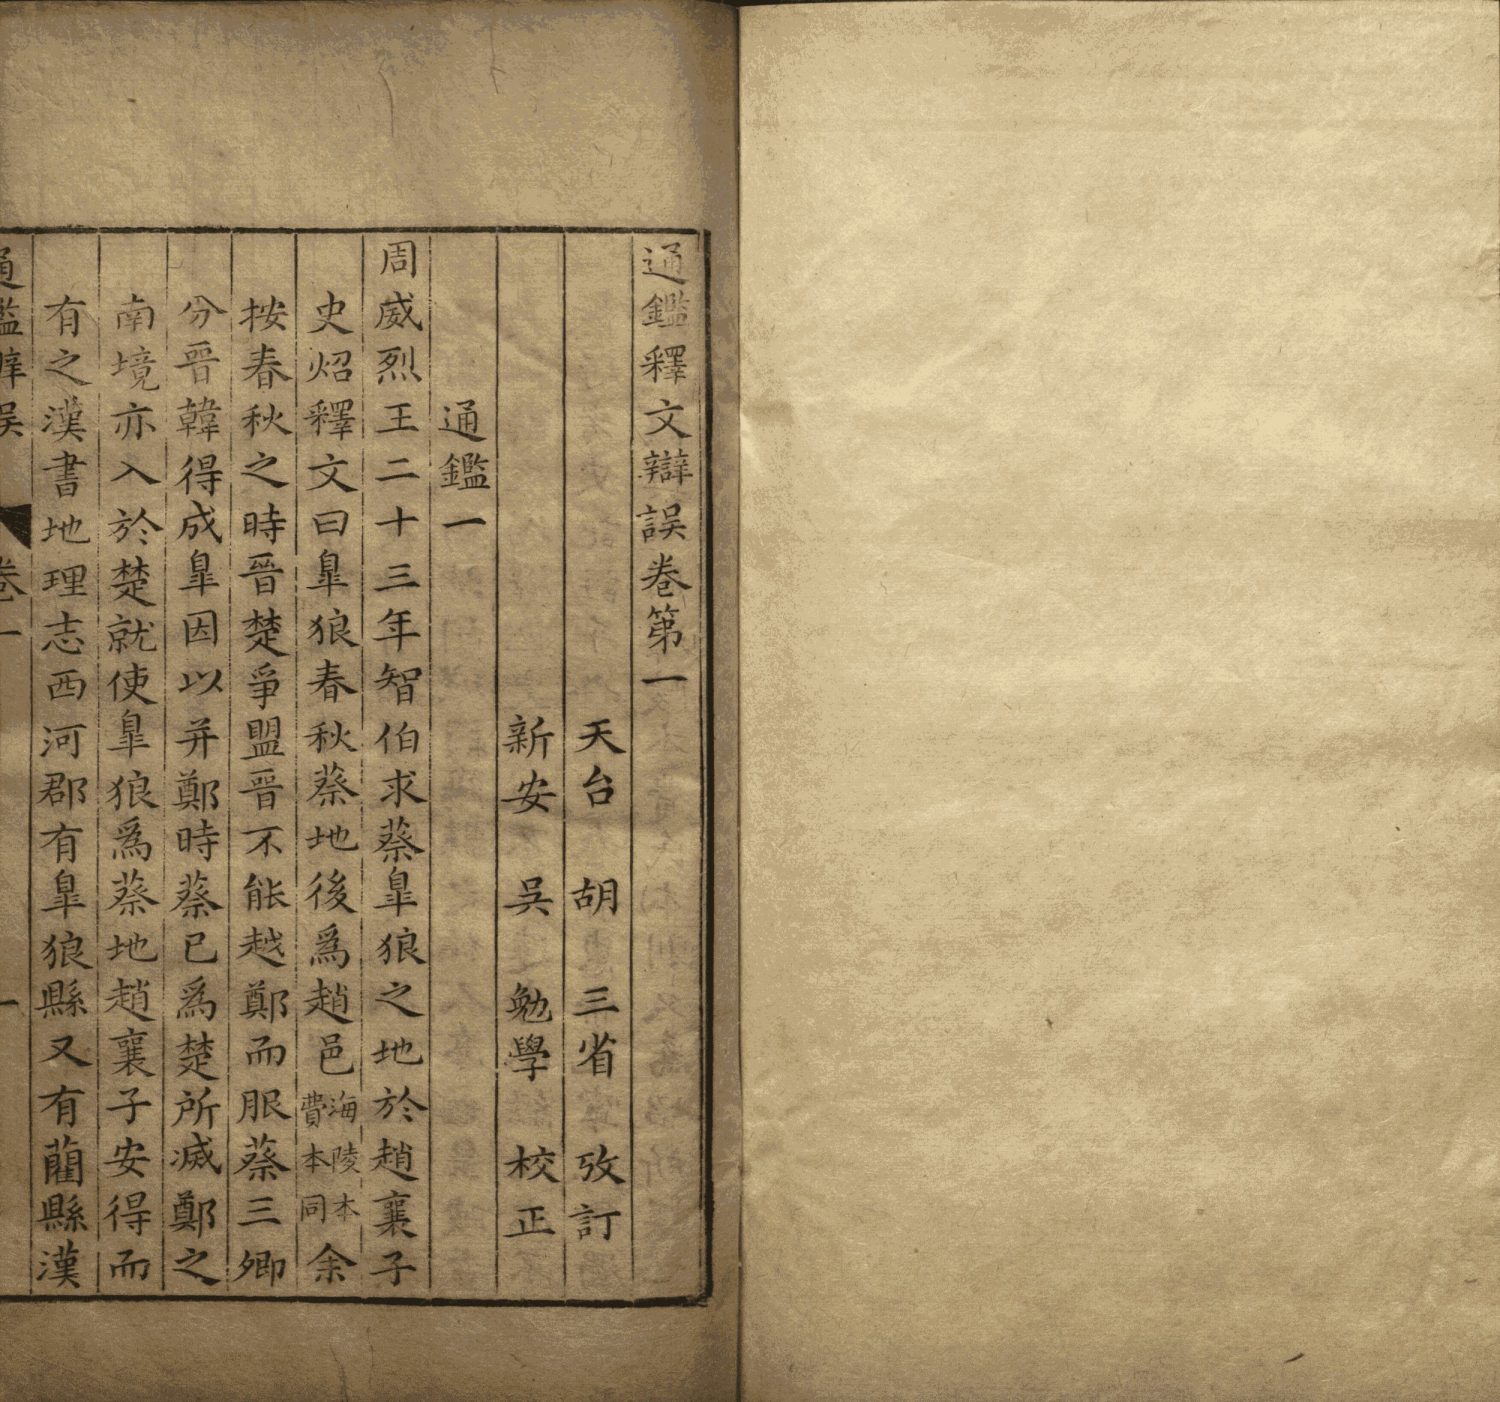 通鑑釋文辯誤卷第一
天台 胡 三省 攷訂
新安 吳 勉學 校正
通鑑一
周威烈王二十三年智伯求蔡皐狼之地於趙襄子
史炤釋文曰皐狼春秋蔡地後爲趙邑海陵本費本同余
按春秋之時晉楚爭盟晉不能越鄭而服蔡三卿
分晉韓得成皐因以并鄭時蔡已爲楚所滅鄭之
南境亦入於楚就使皐狼爲蔡地趙襄子安得而
有之漢書地理志西河郡有皐狼縣又有藺縣漢
通鑑辨誤 卷一 一